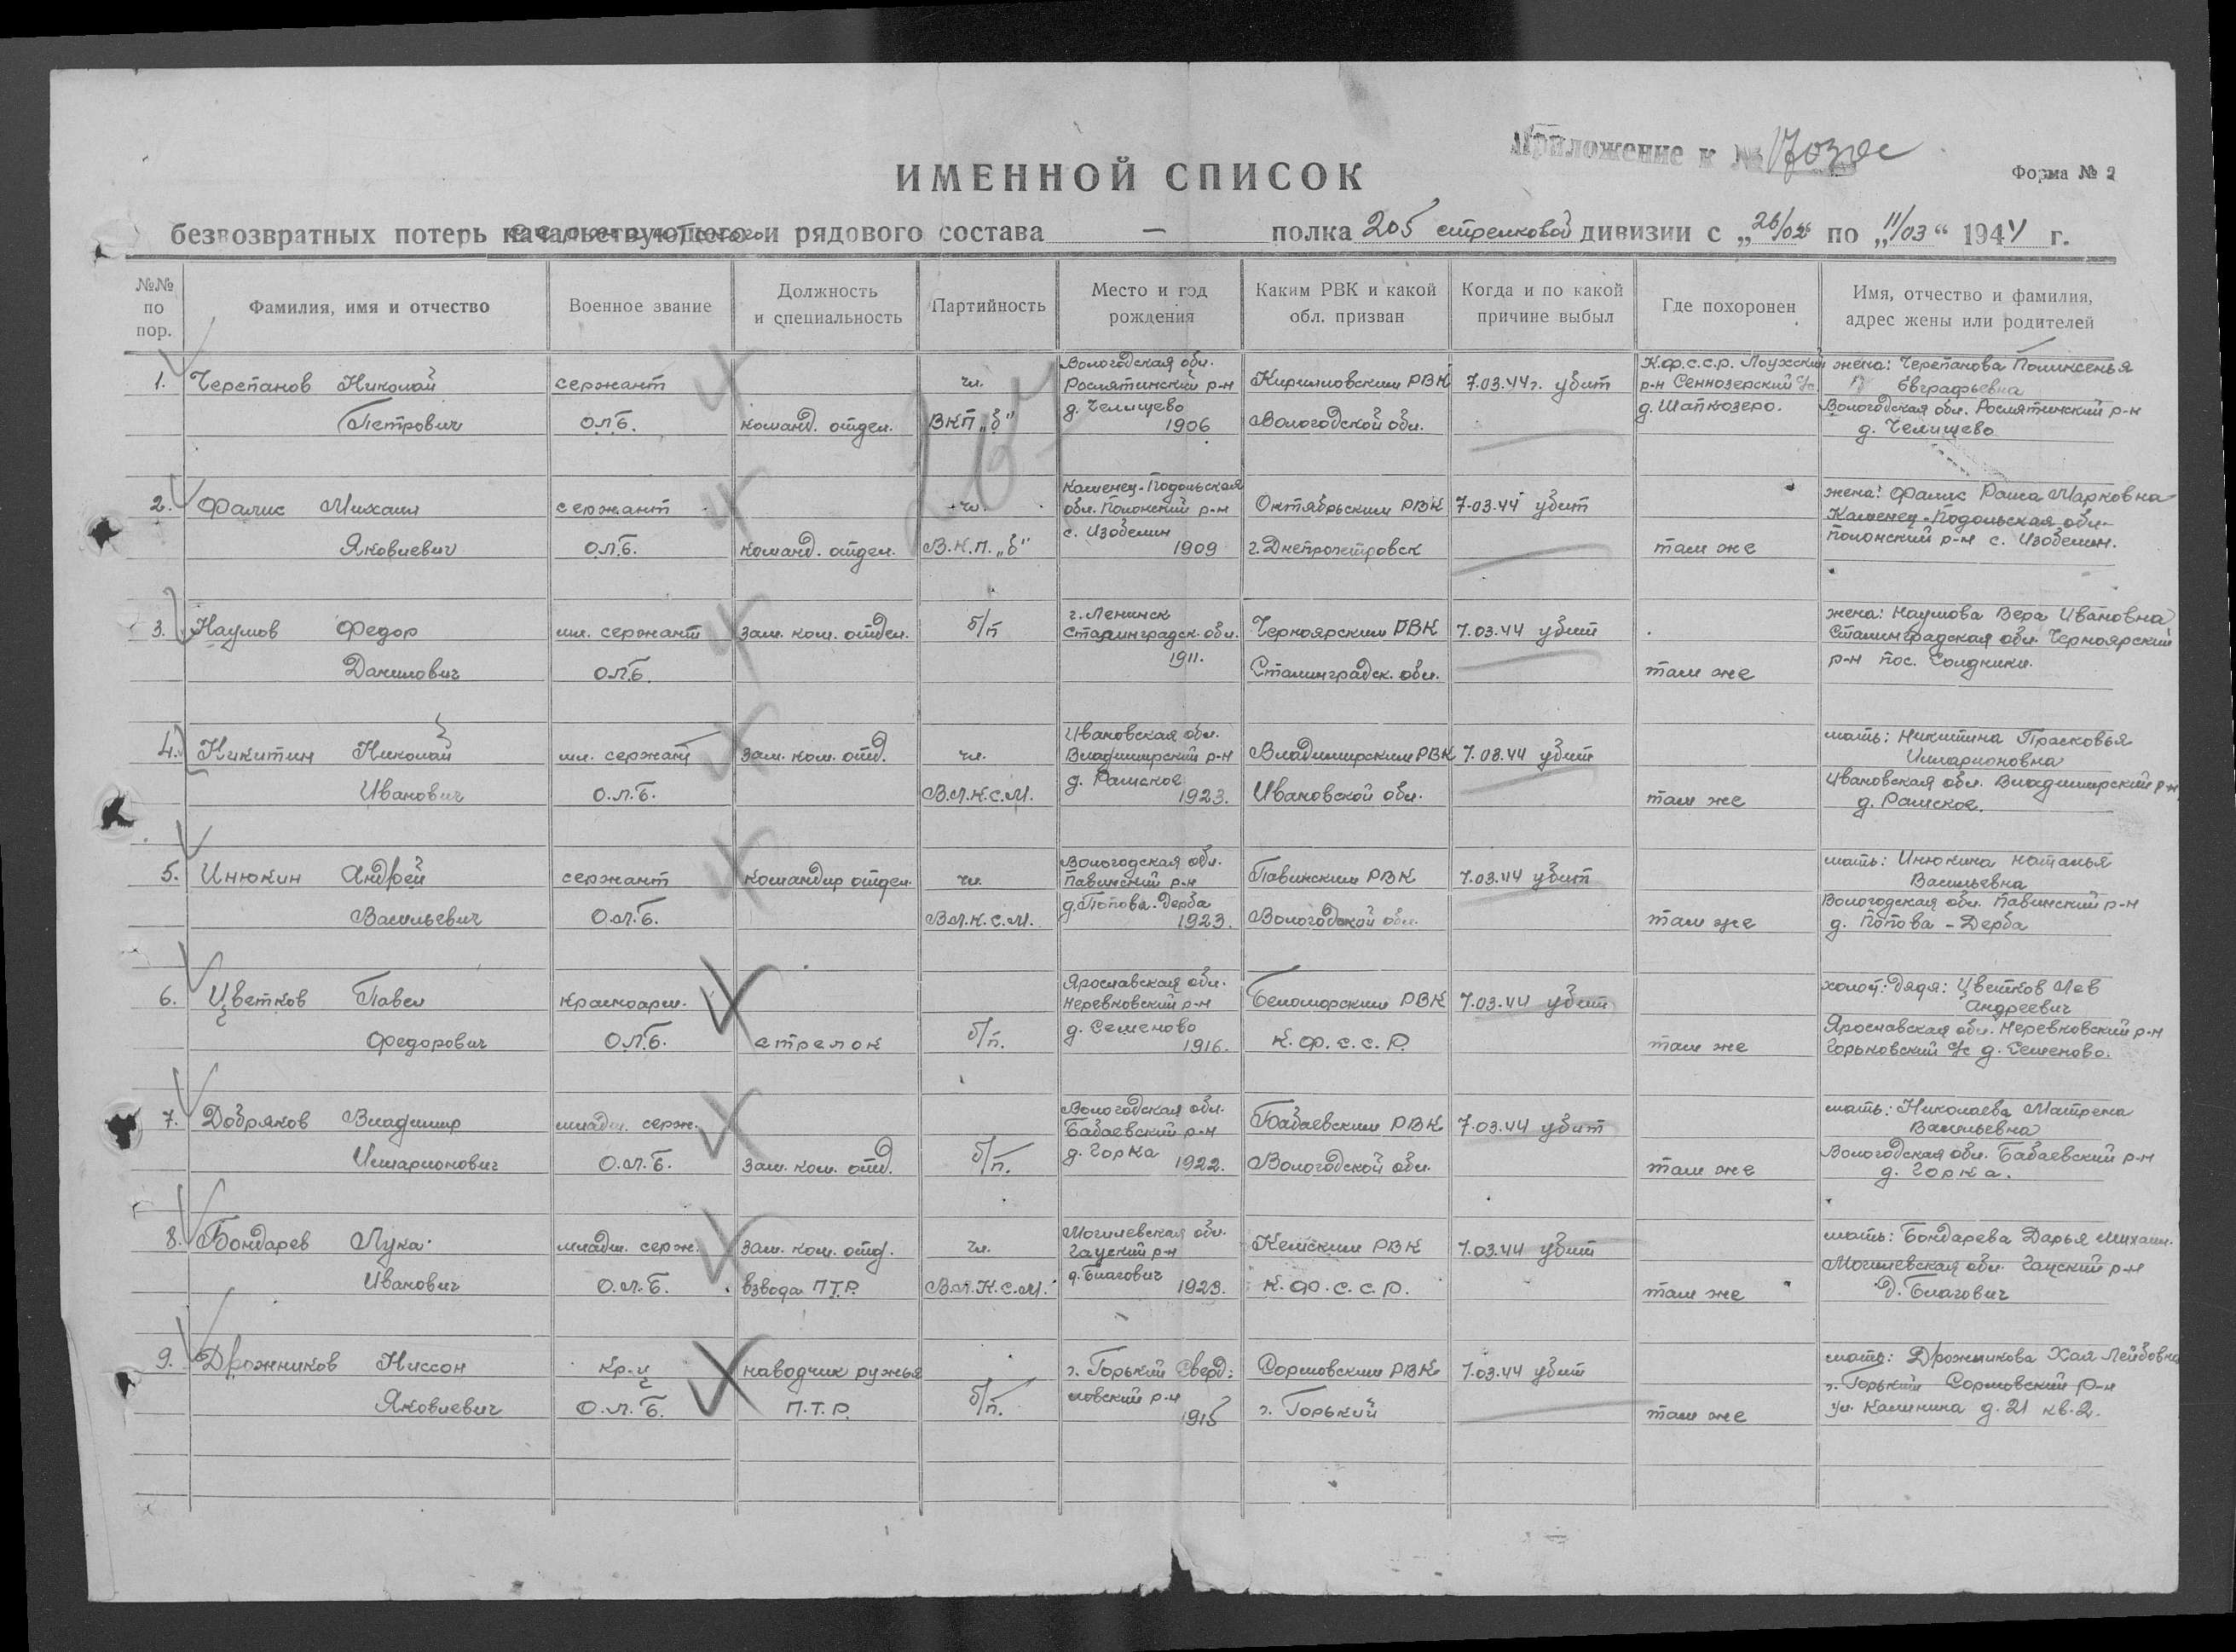 Приложение к № 17032с
Форма № 2
ИМЕННОЙ СПИСОК
безвозвратных потерь начальствующего и рядового состава — полка 205 стрелковой дивизии с „26/02“ по „11/03“ 1944 г.
№№ по пор.
Фамилия, имя и отчество
Военное звание
Должность и специальность
Партийность
Место и год рождения
Каким РВК и какой обл. призван
Когда и по какой причине выбыл
Где похоронен
Имя, отчество и фамилия, адрес жены или родителей
1. Черепанов Николай Петрович
сержант О.Л.Б.
команд. отдел.
чл. ВКП „б“
Вологодская обл. Рослятинский р-н д. Челищево 1906
Кирилловским РВК Вологодской обл.
7.03.44 г. убит
К.Ф.С.С.Р. Лоухский р-н Сеннозерский с/с. д. Шапкозеро.
жена: Черепанова Поликсенья Евграфьевна
Вологодская обл. Рослятинский р-н д. Челищево
2. Фалис Михаил Яковлевич
сержант О.Л.Б.
команд. отдел.
чл. В.К.П. „б“
Каменец-Подольская обл. Полонский р-н с. Изобелин 1909
Октябрьским РВК г. Днепропетровск
7.03.44 убит
там же
жена: Фалис Раиса Марковна
Каменец-Подольская обл. Полонский р-н с. Изобелин.
3. Наумов Федор Данилович
мл. сержант О.Л.Б.
зам. ком. отдел.
б/п
г. Ленинск Сталинградск. обл. 1911.
Черноярским РВК Сталинградск. обл.
7.03.44 убит
там же
жена: Наумова Вера Ивановна
Сталинградская обл. Черноярский р-н пос. Солдники.
4. Никитин Николай Иванович
мл. сержант О.Л.Б.
зам. ком. отд.
чл. В.Л.К.С.М.
Ивановская обл. Владимирский р-н д. Рамское 1923.
Владимирским РВК Ивановской обл.
7.03.44 убит
там же
мать: Никитина Прасковья Илларионовна
Ивановская обл. Владимирский р-н д. Рамское.
5. Инюкин Андрей Васильевич
сержант О.Л.Б.
командир отдел.
чл. В.Л.К.С.М.
Вологодская обл. Павинский р-н д. Попова-Дерба 1923.
Павинским РВК Вологодской обл.
7.03.44 убит
там же
мать: Инюкина Наталья Васильевна
Вологодская обл. Павинский р-н д. Попова-Дерба
6. Цветков Павел Федорович
красноарм. О.Л.Б.
стрелок
б/п.
Ярославская обл. Неревковский р-н д. Семеново 1916.
Беломорским РВК К.Ф.С.С.Р.
7.03.44 убит
там же
холост: дядя: Цветков Лев Андреевич
Ярославская обл. Неревковский р-н Горьковский с/с д. Семеново.
7. Добряков Владимир Илларионович
младш. серж. О.Л.Б.
зам. ком. отд.
б/п.
Вологодская обл. Бабаевский р-н д. Горка 1922.
Бабаевским РВК Вологодской обл.
7.03.44 убит
там же
мать: Николаева Матрена Васильевна
Вологодская обл. Бабаевский р-н д. Горка.
8. Бондарев Лука Иванович
младш. серж. О.Л.Б.
зам. ком. отд. взвода П.Т.Р.
чл. В.Л.К.С.М.
Могилевская обл. Гауский р-н д. Благович 1923.
Кемским РВК К.Ф.С.С.Р.
7.03.44 убит
там же
мать: Бондарева Дарья Михаил.
Могилевская обл. Гауский р-н д. Благович
9. Дрожников Ниссон Яковлевич
кр-ц О.Л.Б.
наводчик ружья П.Т.Р.
б/п.
г. Горький Свердловский р-н 1915
Сормовским РВК г. Горький
7.03.44 убит
там же
мать: Дрожникова Хая Лейбовна
г. Горький Сормовский р-н ул. Калинина д. 21 кв. 2.